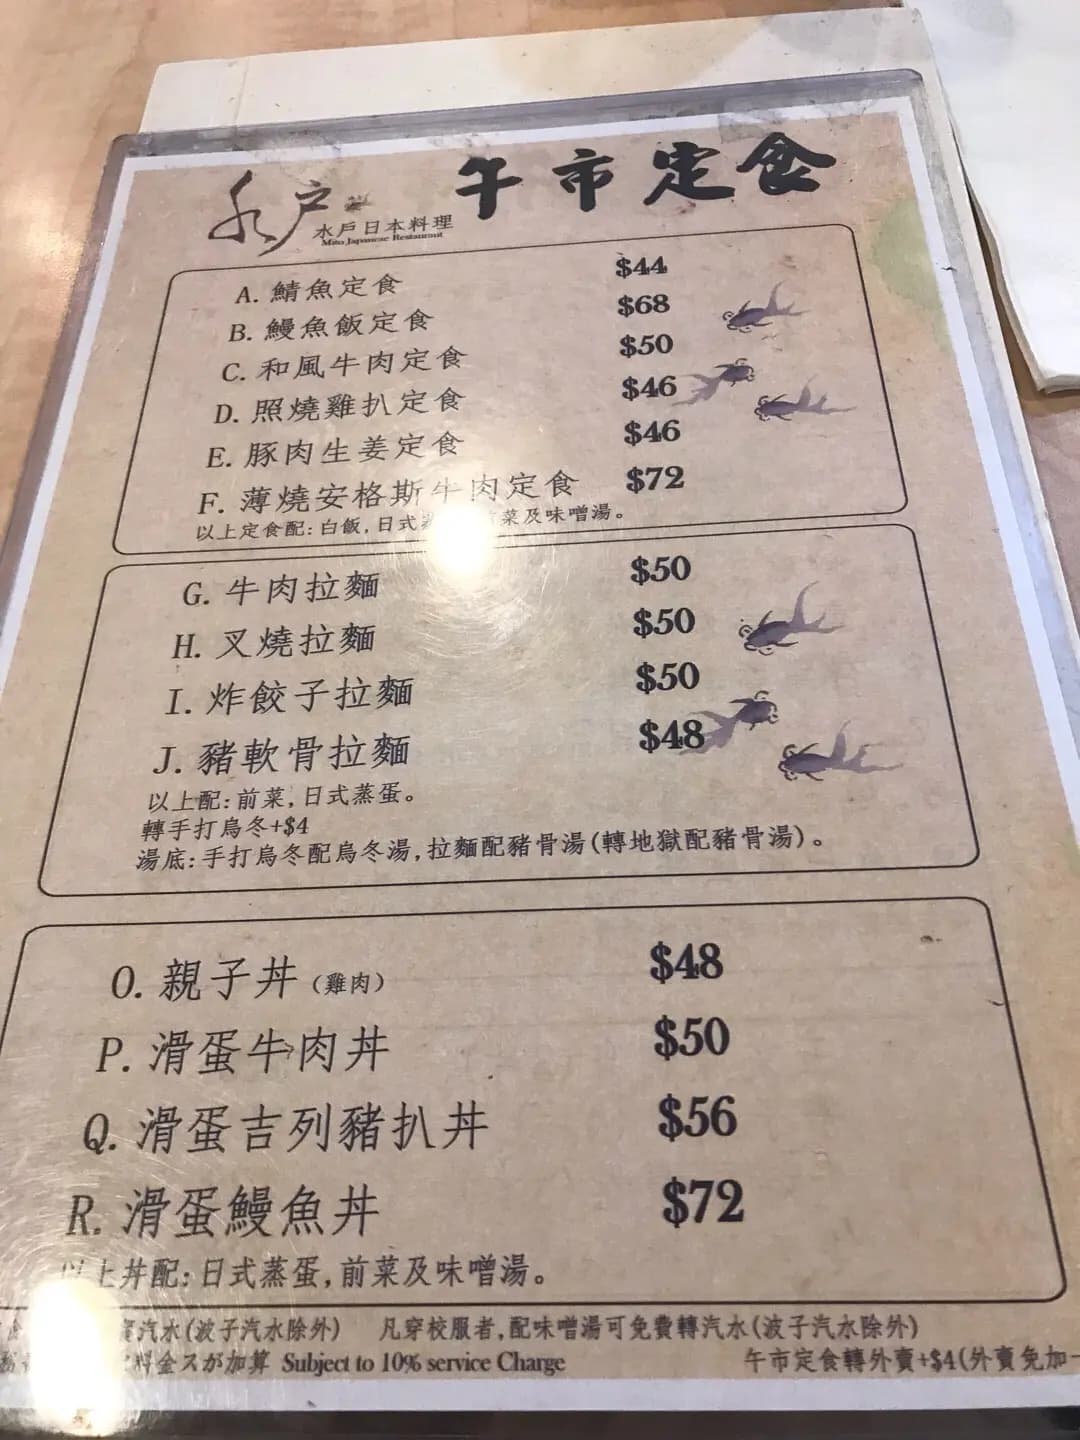 水戶
水戶日本料理
Mito Japanese Restaurant
午市定食
A. 鯖魚定食 $44
B. 鰻魚飯定食 $68
C. 和風牛肉定食 $50
D. 照燒雞扒定食 $46
E. 豚肉生姜定食 $46
F. 薄燒安格斯牛肉定食 $72
以上定食配:白飯,日式 菜及味噌湯。
G. 牛肉拉麵 $50
H. 叉燒拉麵 $50
I. 炸餃子拉麵 $50
J. 豬軟骨拉麵 $48
以上配:前菜,日式蒸蛋。
轉手打烏冬+$4
湯底:手打烏冬配烏冬湯,拉麵配豬骨湯(轉地獄配豬骨湯)。
O. 親子丼(雞肉) $48
P. 滑蛋牛肉丼 $50
Q. 滑蛋吉列豬扒丼 $56
R. 滑蛋鰻魚丼 $72
以上丼配:日式蒸蛋,前菜及味噌湯。
汽水(波子汽水除外) 凡穿校服者,配味噌湯可免費轉汽水(波子汽水除外)
料金スが加算 Subject to 10% service Charge 午市定食轉外賣+$4(外賣免加一